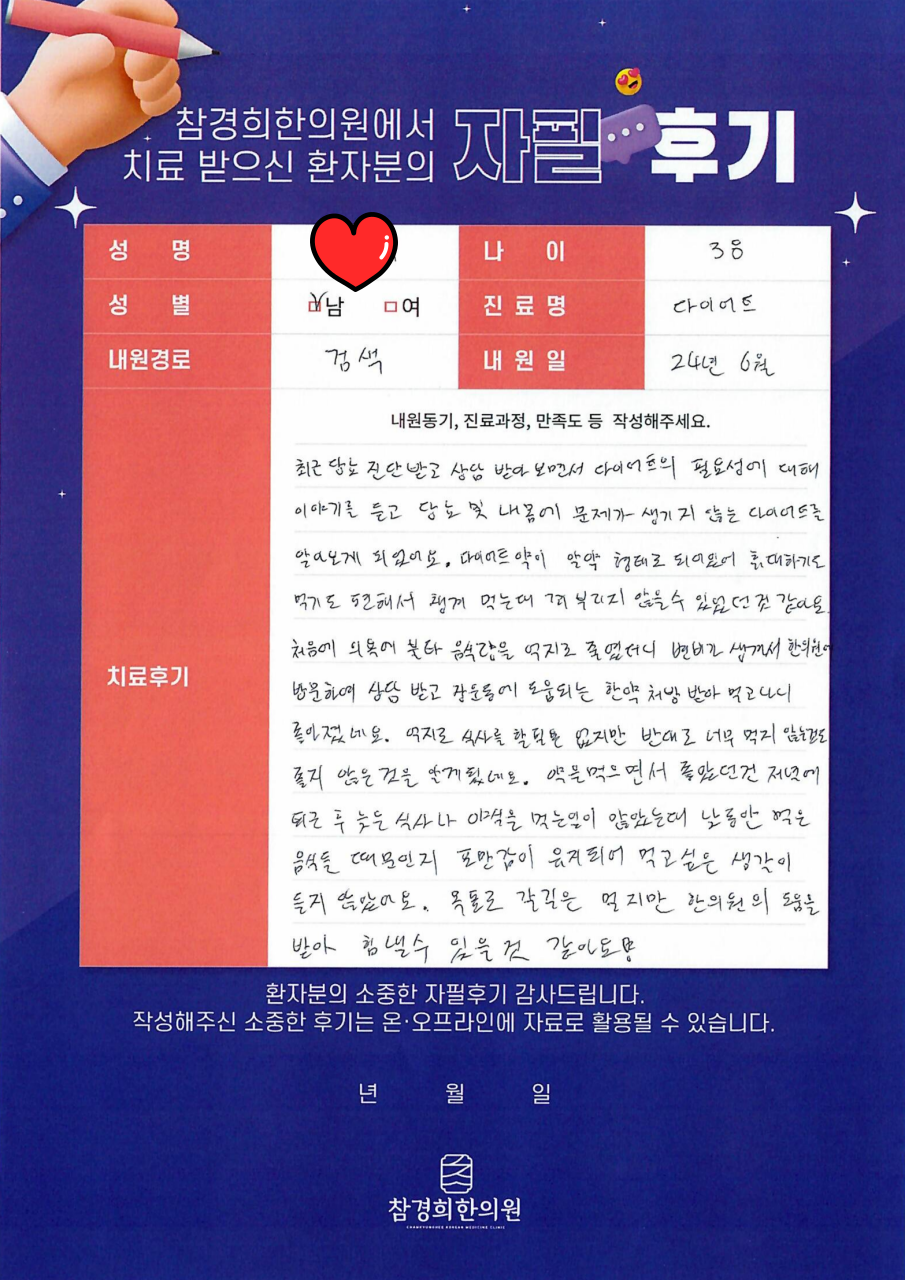 참경희한의원에서
치료 받으신 환자분의 자필 후기
성 명
나 이 38
성 별 남 여
진료명 다이어트
내원경로 검색
내원일 24년 6월
내원동기, 진료과정, 만족도 등 작성해주세요.
치료후기
최근 당뇨 진단받고 상담 받아보면서 다이어트의 필요성에 대해
이야기를 듣고 당뇨 및 내몸에 문제가 생기지 않는 다이어트를
알아보게 되었어요. 다이어트약이 알약 형태로 되어있어 휴대하기도
먹기도 편해서 챙겨 먹는데 거부리지 않을수 있었던것 같아요.
처음에 의욕에 불타 음식량을 억지로 줄였더니 변비가 생겨서 한의원에
방문하여 상담 받고 장운동에 도움되는 한약 처방 받아 먹고나니
좋아졌네요. 억지로 식사를 할필요 없지만 반대로 너무 먹지 않는것도
좋지 않은것을 알게됬네요. 약을먹으면서 좋았던건 저녁에
퇴근 후 늦은 식사나 야식을 먹는일이 많았는데 낮동안 먹은
음식들 때문인지 포만감이 유지되어 먹고싶은 생각이
들지 않았어요. 목표로 갈길은 멀지만 한의원의 도움을
받아 힘낼수 있을것 같아요!
환자분의 소중한 자필후기 감사드립니다.
작성해주신 소중한 후기는 온·오프라인에 자료로 활용될 수 있습니다.
년 월 일
참경희한의원